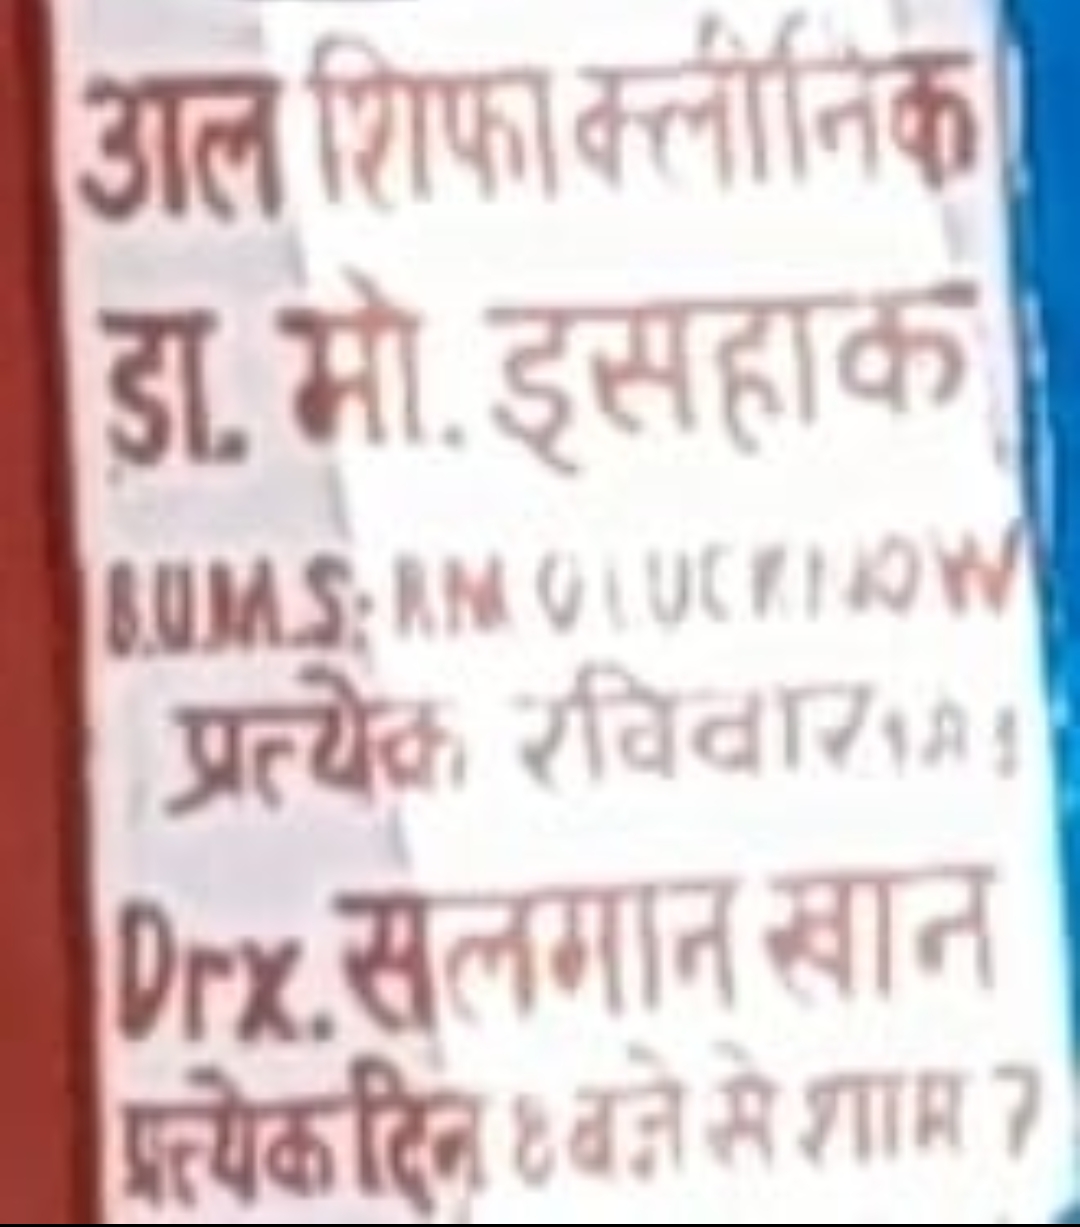 अल शिफा क्लीनिक
डा. मो. इसहाक
B.U.M.S:
प्रत्येक रविवार
Drx. सलमान खान
प्रत्येक दिन 8 बजे से शाम